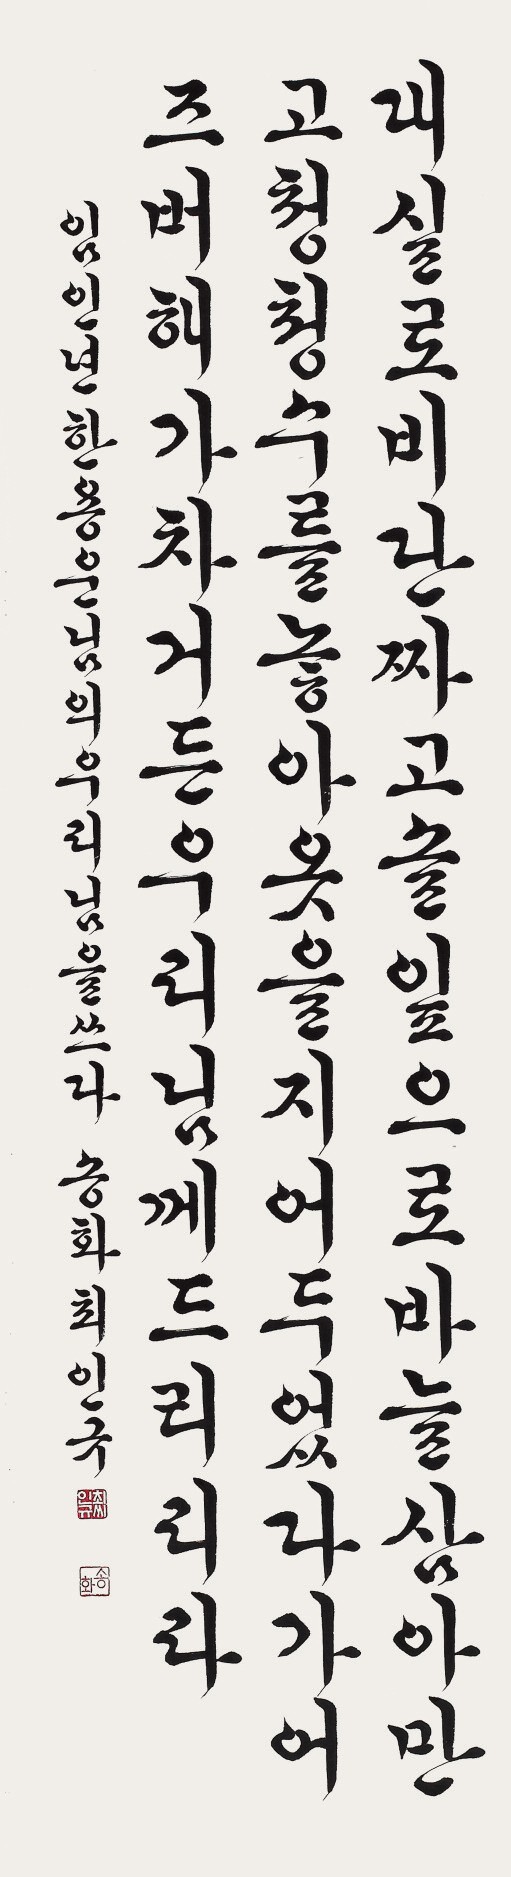 대실로비단짜고솔잎으로바늘삼아만
고청청수를놓아옷을지어두었다가어
즈버해가차거든우리님께드리리라
임인년한용운님의우리님을쓰다 송화최인규
최씨인규
송화